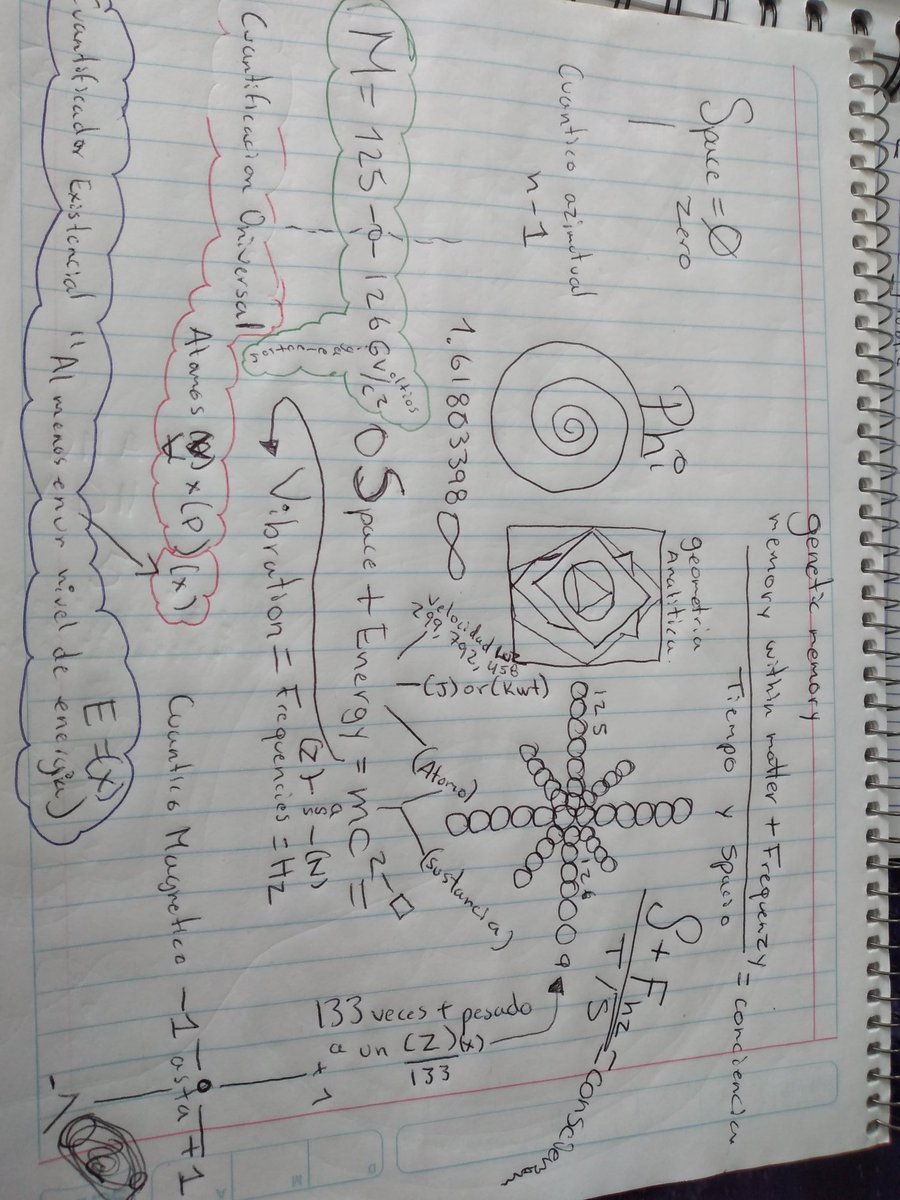 genetic memory
memory within matter + Frequenzy = conciencia
Tiempo y Spacio
Space = Ø
1 zero
Phi
geometria
Analitica.
S + Fhz
T/S
Cuantico azimutual
n-1
125
126
1.61803398 ∞
Velocidad luz
299,792,458
-(J) or (Kwt)
(Atomo)
(sustancia)
M = 125 - 0 - 126 Gv/c²
oltios
0 Space + Energy = mc² =
133 veces + pesado
a un (Z)(x)
133
Vibration = Frequencies = Hz
(Z) +
- (N)
Cuantificacion Universal
Atomos x (p) (x)
Cuantico Magnetico -1 asta +1
+1
-1
Cuantificador Existencial "Al menos en un nivel de energia)
E = (x)